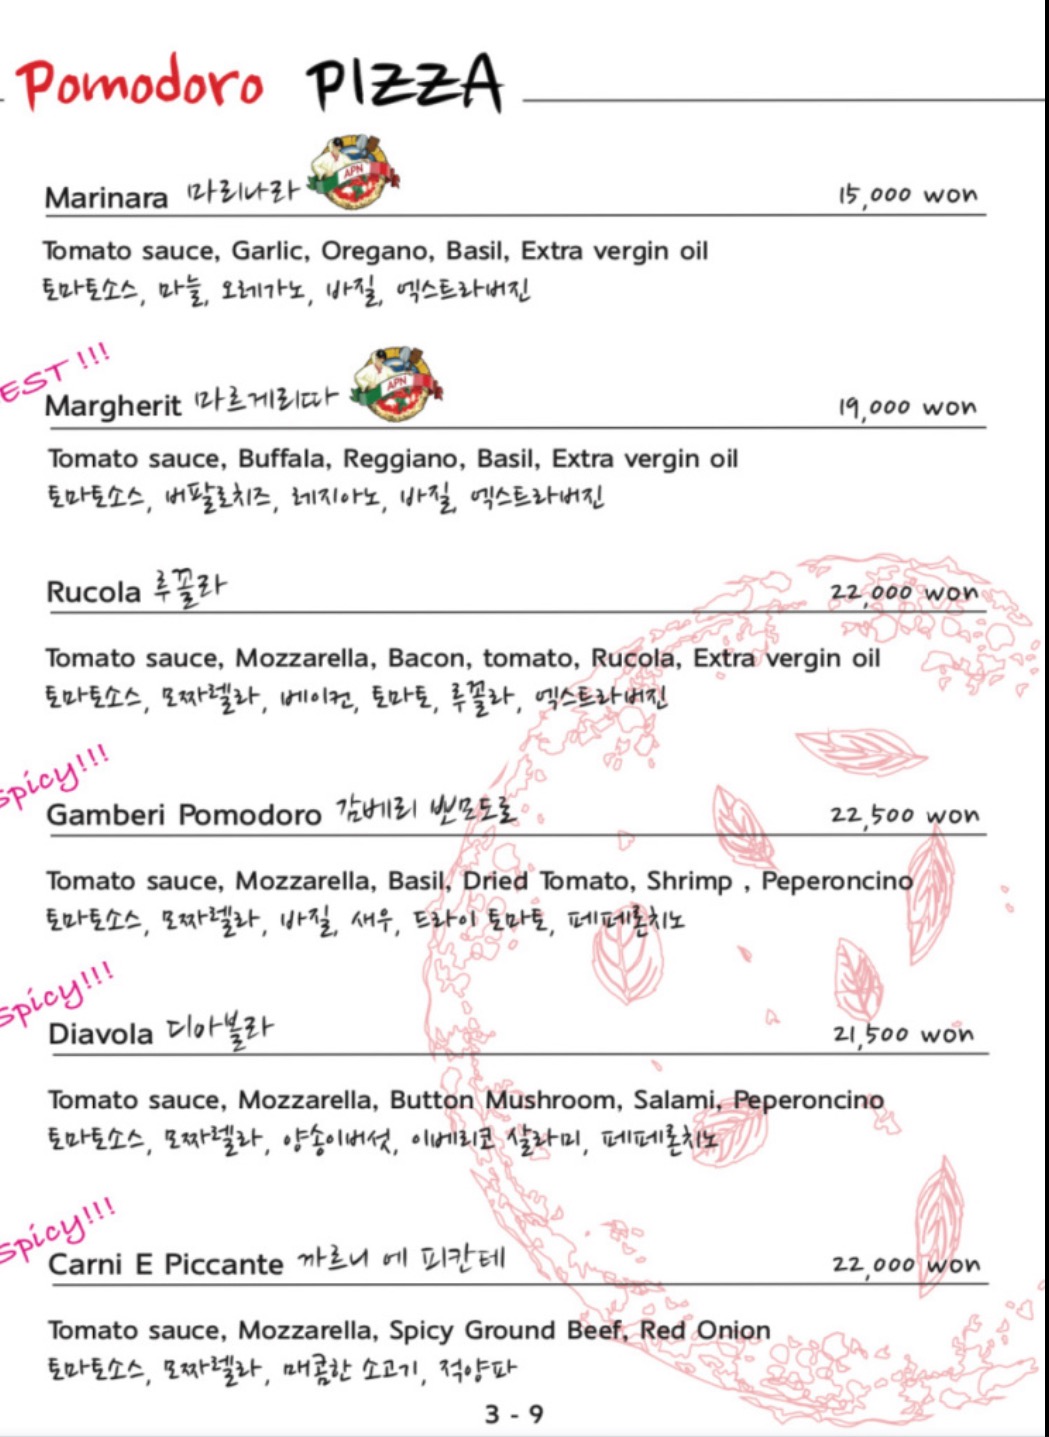 Pomodoro PIZZA
Marinara 마리나라 APN 15,000 won
Tomato sauce, Garlic, Oregano, Basil, Extra vergin oil
토마토소스, 마늘, 오레가노, 바질, 엑스트라버진
EST !!!
Margherit 마르게리따 APN 19,000 won
Tomato sauce, Buffala, Reggiano, Basil, Extra vergin oil
토마토소스, 버팔로치즈, 레지아노, 바질, 엑스트라버진
Rucola 루꼴라 22,000 won
Tomato sauce, Mozzarella, Bacon, tomato, Rucola, Extra vergin oil
토마토소스, 모짜렐라, 베이컨, 토마토, 루꼴라, 엑스트라버진
spicy!!!
Gamberi Pomodoro 감베리 뽀모도로 22,500 won
Tomato sauce, Mozzarella, Basil, Dried Tomato, Shrimp , Peperoncino
토마토소스, 모짜렐라, 바질, 새우, 드라이 토마토, 페페론치노
spicy!!!
Diavola 디아볼라 21,500 won
Tomato sauce, Mozzarella, Button Mushroom, Salami, Peperoncino
토마토소스, 모짜렐라, 양송이버섯, 이베리코 살라미, 페페론치노
spicy!!!
Carni E Piccante 까르니 에 피칸테 22,000 won
Tomato sauce, Mozzarella, Spicy Ground Beef, Red Onion
토마토소스, 모짜렐라, 매콤한 소고기, 적양파
3 - 9